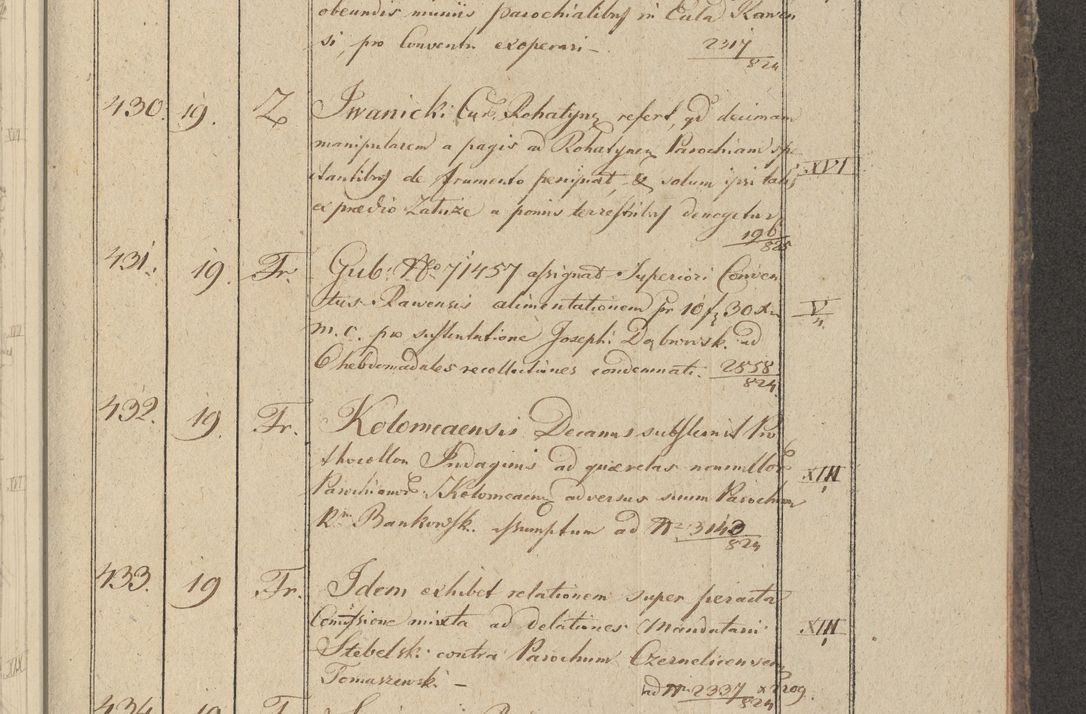 obeundis muniis parochialibus in Caula Rawen
si, pro Conventu exoperari – 2317/824
430. 19. Z Iwanicki Cur. Rohatyn. refert, qd decimam
manipularem a pagis ad Rohatynen. Parochiam spe
ctantibus de frumento percipiat, & solum ipsi talis XVI
ex prædio Zaluże a pomis terrestribus denegetur
196/825
431. 19. Fr. Gub. Nro 71457 assignat Superiori Conven
tus Rawensis alimentationem pr 10 f 30 xr V/4.
m. c. pro sustentatione Joseph. Dąbrowsk. ad
6 hebdomadales recollectiones condemnati. 2858/824.
432. 19. Fr. Kolomeaensis Decanus substernit Pro
thocollon Indaginis ad quærelas nonnullor XIII/1
Parochianor. Kolomeaen. adversus suum Parochum
Rdm Bankowsk. assumptum ad Nr. 3140/824
433. 19 Fr. Idem exhibet relationem super peracta
Comissione mixta ad delationes Mandatarii XIII/1
Stebelski contra Parochum Czernelicensem
Tomaszewski –
ad Nr. 2337/824 x 2209.
434 19